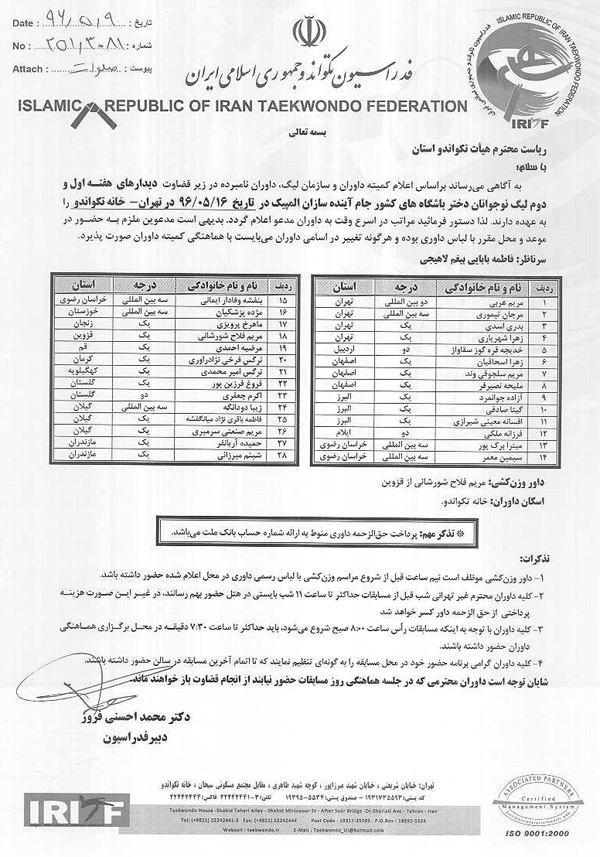 Date : ۹۶/۵/۹ تاریخ :
No : ۲۵۱/۳۰۸۱ شماره :
Attach : پیوست :
فدراسیون تکواندو جمهوری اسلامی ایران
ISLAMIC REPUBLIC OF IRAN TAEKWONDO FEDERATION
ISLAMIC REPUBLIC OF IRAN TAEKWONDO FEDERATION
IRITF
بسمه تعالی
ریاست محترم هیأت تکواندو استان
با سلام؛
به آگاهی می‌رساند براساس اعلام کمیته داوران و سازمان لیگ، داوران نامبرده در زیر قضاوت دیدارهای هفته اول و
دوم لیگ نوجوانان دختر باشگاه های کشور جام آینده سازان المپیک در تاریخ ۹۶/۰۵/۱۶ در تهران- خانه تکواندو را
به عهده دارند. لذا دستور فرمائید مراتب در اسرع وقت به داوران مدعو اعلام گردد. بدیهی است مدعوین ملزم به حضور در
موعد و محل مقرر با لباس داوری بوده و هرگونه تغییر در اسامی داوران می‌بایست با هماهنگی کمیته داوران صورت پذیرد.
سرناظر: فاطمه بابایی بیغم لاهیجی
ردیف نام و نام خانوادگی درجه استان
۱ مریم عربی دو بین المللی تهران
۲ مرجان تیموری سه بین المللی تهران
۳ بدری اسدی یک تهران
۴ زهرا شهریاری یک تهران
۵ خدیجه قره گوز سقاواز دو اردبیل
۶ زهرا اسحاقیان یک اصفهان
۷ مریم سلجوقی وند یک اصفهان
۸ ملیحه نصیرفر یک اصفهان
۹ آزاده جوانمرد یک البرز
۱۰ گیتا صادقی یک البرز
۱۱ افسانه معینی شیرازی یک البرز
۱۲ فرزانه ملکی دو ایلام
۱۳ میترا برک پور سه بین المللی خراسان رضوی
۱۴ سیمین معمر سه بین المللی خراسان رضوی
ردیف نام و نام خانوادگی درجه استان
۱۵ بنفشه وفادار ایمانی سه بین المللی خراسان رضوی
۱۶ مژده پزشکیان سه بین المللی خوزستان
۱۷ ماهرخ پرویزی یک زنجان
۱۸ مریم فلاح شورشانی یک قزوین
۱۹ مرضیه احمدی یک قم
۲۰ نرگس فرخی نژادراوری یک کرمان
۲۱ نرگس امیر محمدی یک کهگیلویه
۲۲ فروغ فرزین پور یک گلستان
۲۳ اکرم جعفری دو گلستان
۲۴ زیبا دودانگه سه بین المللی گیلان
۲۵ فاطمه باقری نژاد میانگفشه یک گیلان
۲۶ مریم صنعتی سرمیری یک گیلان
۲۷ حمیده آریانفر یک مازندران
۲۸ شبنم میرزائی یک مازندران
داور وزن‌کشی: مریم فلاح شورشانی از قزوین
اسکان داوران: خانه تکواندو.
* تذکر مهم: پرداخت حق‌الزحمه داوری منوط به ارائه شماره حساب بانک ملت می‌باشد.
تذکرات:
۱- داور وزن‌کشی موظف است نیم ساعت قبل از شروع مراسم وزن‌کشی با لباس رسمی داوری در محل اعلام شده حضور داشته باشد.
۲- کلیه داوران محترم غیر تهرانی شب قبل از مسابقات حداکثر تا ساعت ۱۱ شب بایستی در هتل حضور بهم رسانند، در غیر این صورت هزینه
پرداختی از حق الزحمه داور کسر خواهد شد
۳- کلیه داوران با توجه به اینکه مسابقات رأس ساعت ۸:۰۰ صبح شروع می‌شود، باید حداکثر تا ساعت ۷:۳۰ دقیقه در محل برگزاری هماهنگی
داوران حضور داشته باشند.
۴- کلیه داوران گرامی برنامه حضور خود در محل مسابقه را به گونه‌ای تنظیم نمایند که تا اتمام آخرین مسابقه در سالن حضور داشته باشند.
شایان توجه است داوران محترمی که در جلسه هماهنگی روز مسابقات حضور نیابند از انجام قضاوت باز خواهند ماند.
دکتر محمد احسنی فروز
دبیرفدراسیون
IRITF
تهران: خیابان شریعتی ، خیابان شهید میرزاپور ، کوچه شهید طاهری ، مقابل مجتمع مسکونی سبحان ، خانه تکواندو
کد پستی: ۱۹۳۱۷۳۵۵۹۳ - صندوق پستی: ۵۵۳۴-۱۹۳۹۵ تلفن: ۳-۲۲۲۴۲۴۴۱ فاکس: ۲۲۲۴۲۴۴۴
Taekwondo House -Shahid Taheri Alley - Shahid Mirzapour St - After Sadr Bridge -Dr.Shariati Ave - Tehran - Iran
Tel: (+9821) 22242441-3 Fax: (+9821) 22242444 Post Code : 19317-35593 , P.O.Box : 19395-5534
Websit : taekwondo.ir E-Mail : Taekwondo_iri@hotmail.com
ASSOCIATED PARTNERS
Certified
Management System
ISO 9001:2000